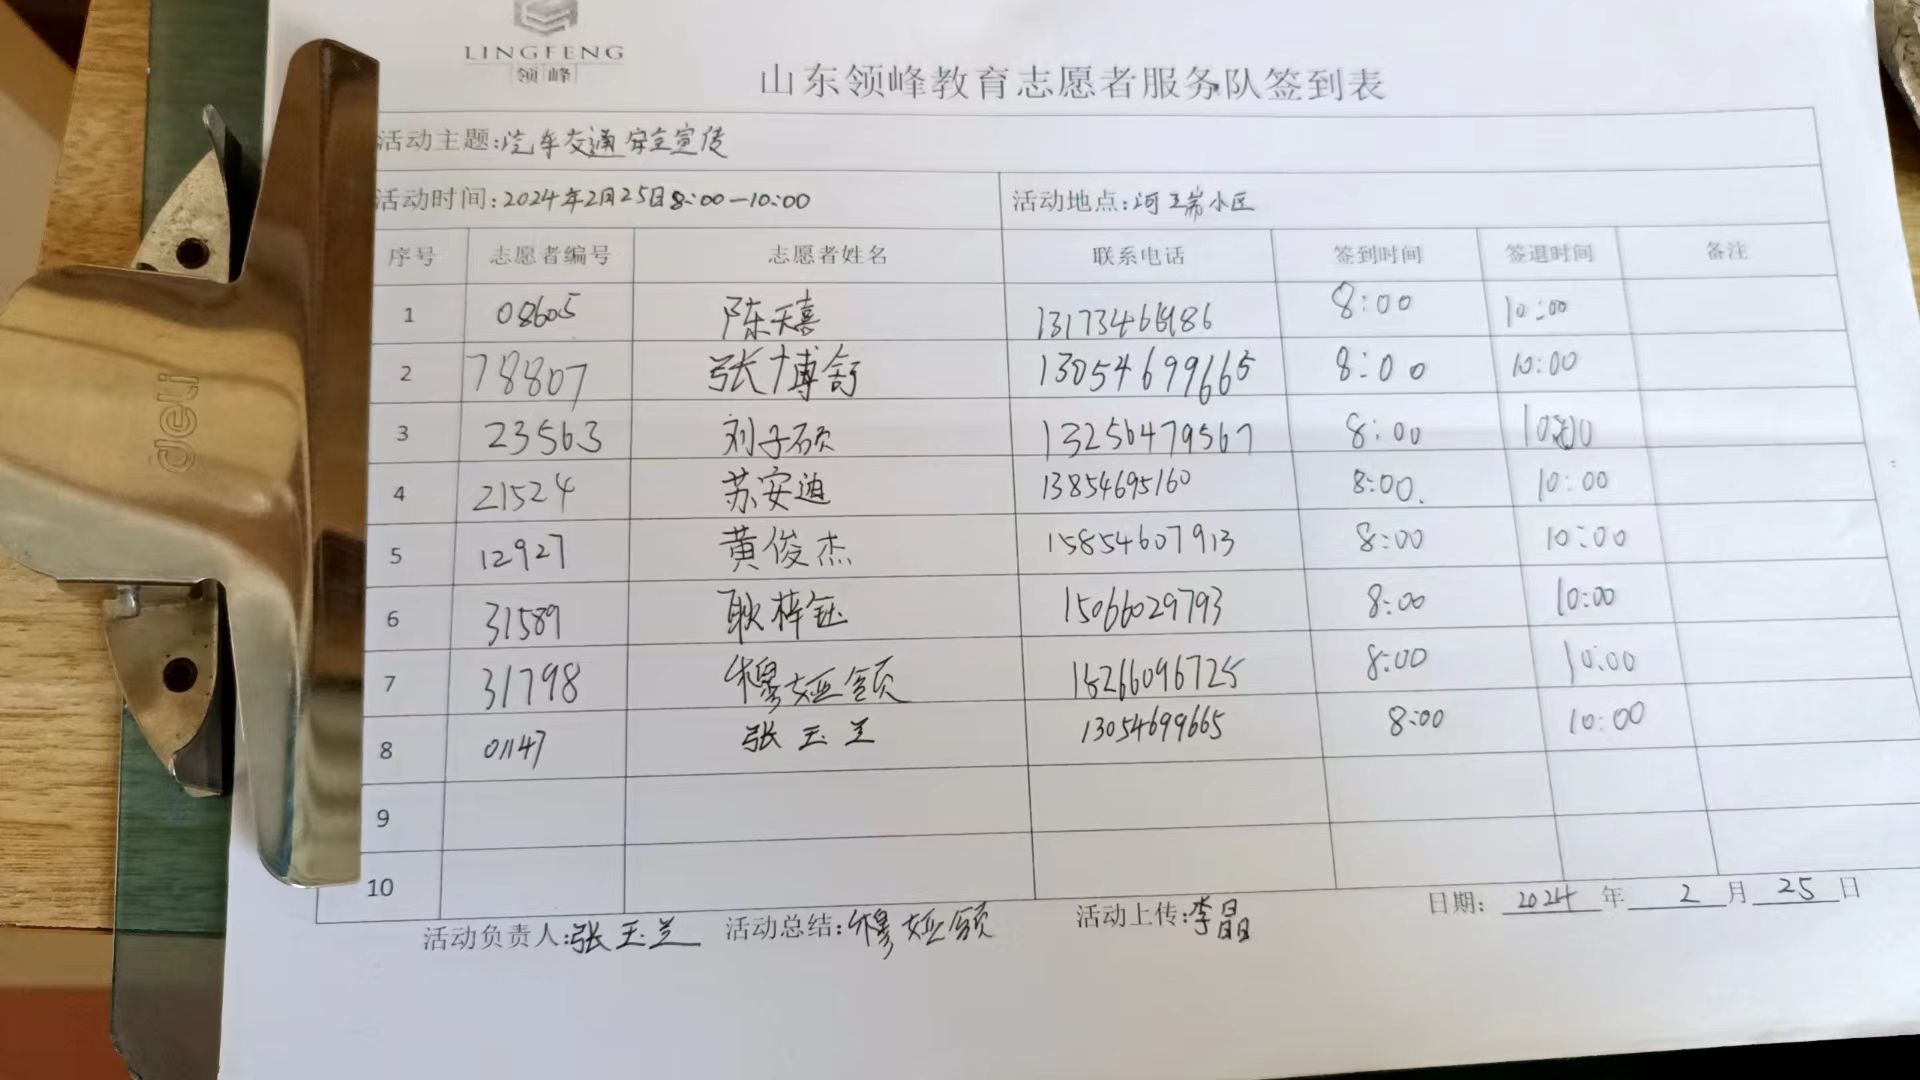 LINGFENG
领峰
山东领峰教育志愿者服务队签到表
活动主题:汽车交通安全宣传
活动时间:2024年2月25日8:00—10:00 活动地点:河瑞小区
序号 志愿者编号 志愿者姓名 联系电话 签到时间 签退时间 备注
1 08605 陈天熹 8:00 10:00
2 78807 张博舒 13054699665 8:00 10:00
3 23563 刘子硕 13256479567 8:00
4 21524 苏安迪 13854695160 8:00. 10:00
5 12927 黄俊杰 15854607913 8:00 10:00
6 31589 耿梓钰 15066029793 8:00 10:00
7 31798 穆娅颔 15266096725 8:00 10:00
8 01147 张玉兰 13054699665 8:00 10:00
9
10
活动负责人:张玉兰 活动总结:穆娅颔 活动上传:李晶 日期: 2024 年 2 月 25 日
deli